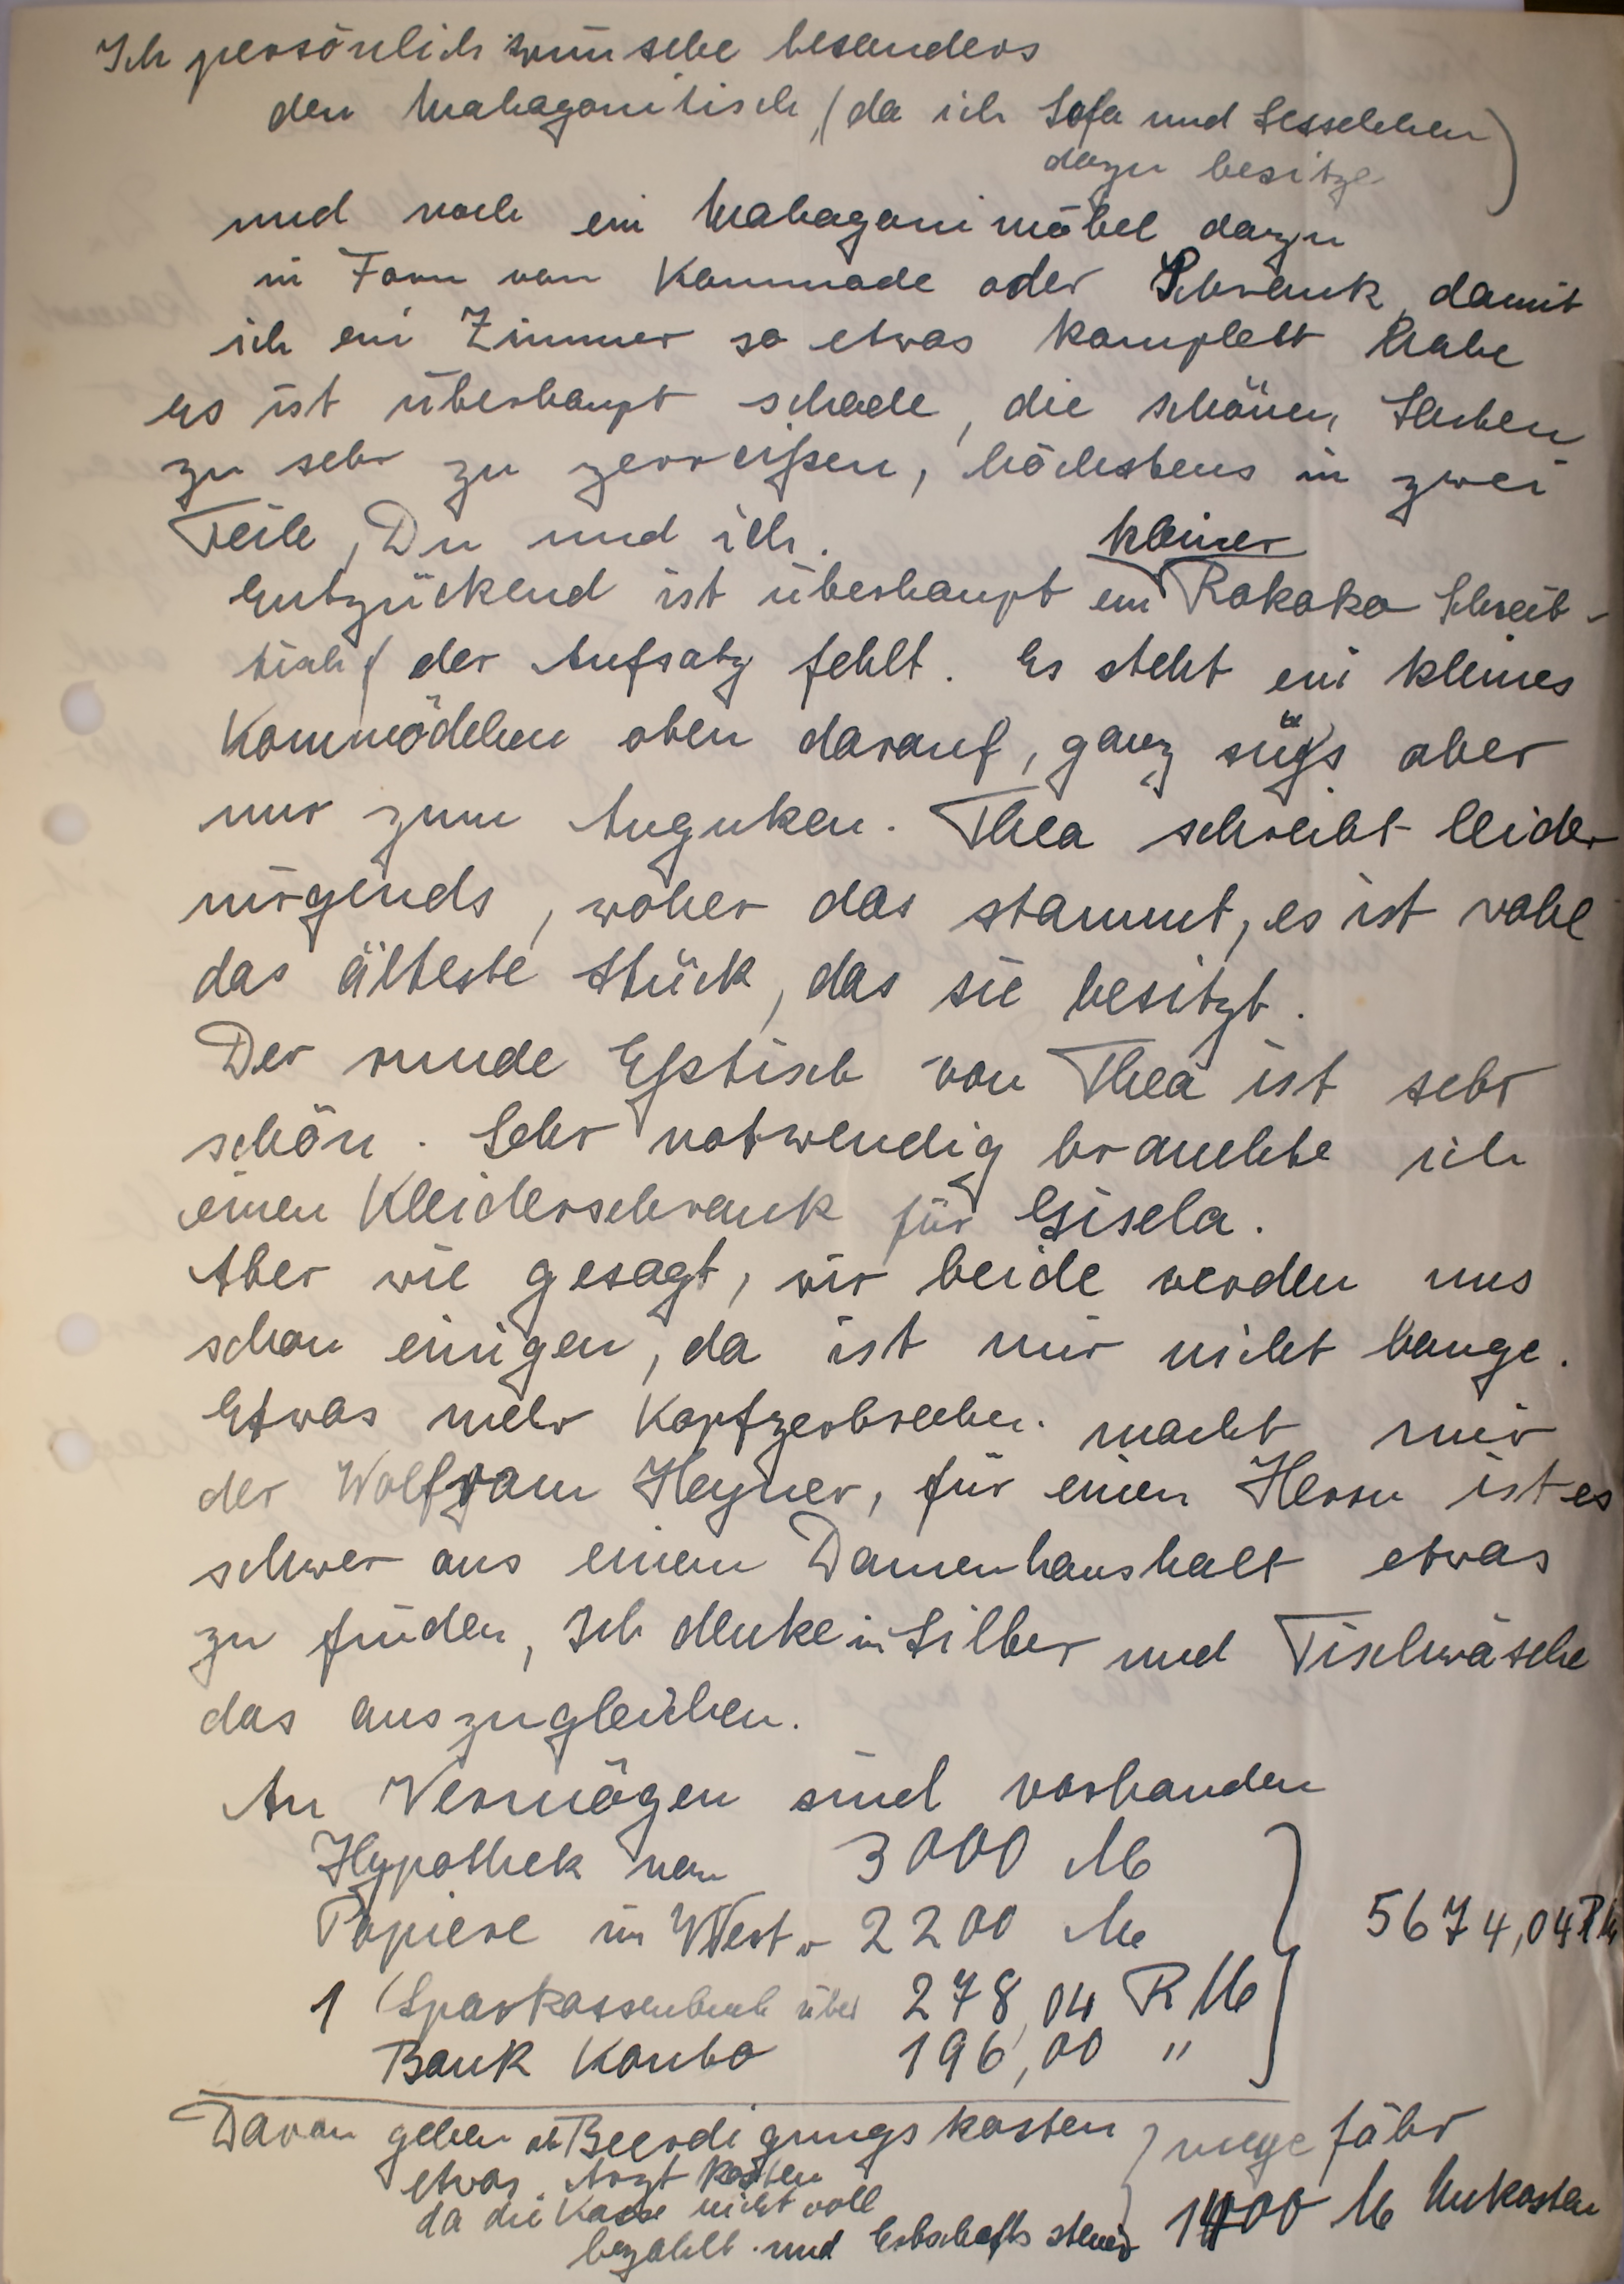 Ich persönlich wünsche besonders
den Mahagonitisch, (da ich Sofa und Sesselchen
dazu besitze)
und noch ein Mahagonimöbel dazu
in Form von Kommode oder Schrank, damit
ich ein Zimmer so etwas komplett habe
Es ist überhaupt schade, die schönen Sachen
zu sehr zu zerreißen, höchstens in zwei
Teile, Du und ich.
kleiner
Entzückend ist überhaupt ein Rokoko Schreib-
tisch ( der Aufsatz fehlt. Es steht ein kleines
Kommödchen oben darauf, ganz süß aber
nur zum Anguken. Thea schreibt leider
nirgends, woher das stammt, es ist wohl
das älteste Stück, das sie besitzt.
Der runde Eßtisch von Thea ist sehr
schön. Sehr notwendig brauchte ich
einen Kleiderschrank für Gisela.
Aber wie gesagt, wir beide werden uns
schon einigen, da ist mir nicht bange.
Etwas mehr Kopfzerbrechen macht mir
der Wolfram Heyner, für einen Herrn ist es
schwer aus einem Damenhaushalt etwas
zu finden, Ich denke in Silber und Tischwäsche
das auszugleichen.
An Vermögen sind vorhanden
Hypothek von 3000 M
Papiere im West. 2200 M
1 Sparkassenbuch über 278,04 RM
Bank Konto 196,00 "
5674,04 RM
Davon gehen ab Beerdigungskosten
etwas Arzt kosten
da die Kasse nicht voll
bezahlt und Erbschafts steuer
ungefähr
1400 M Unkosten